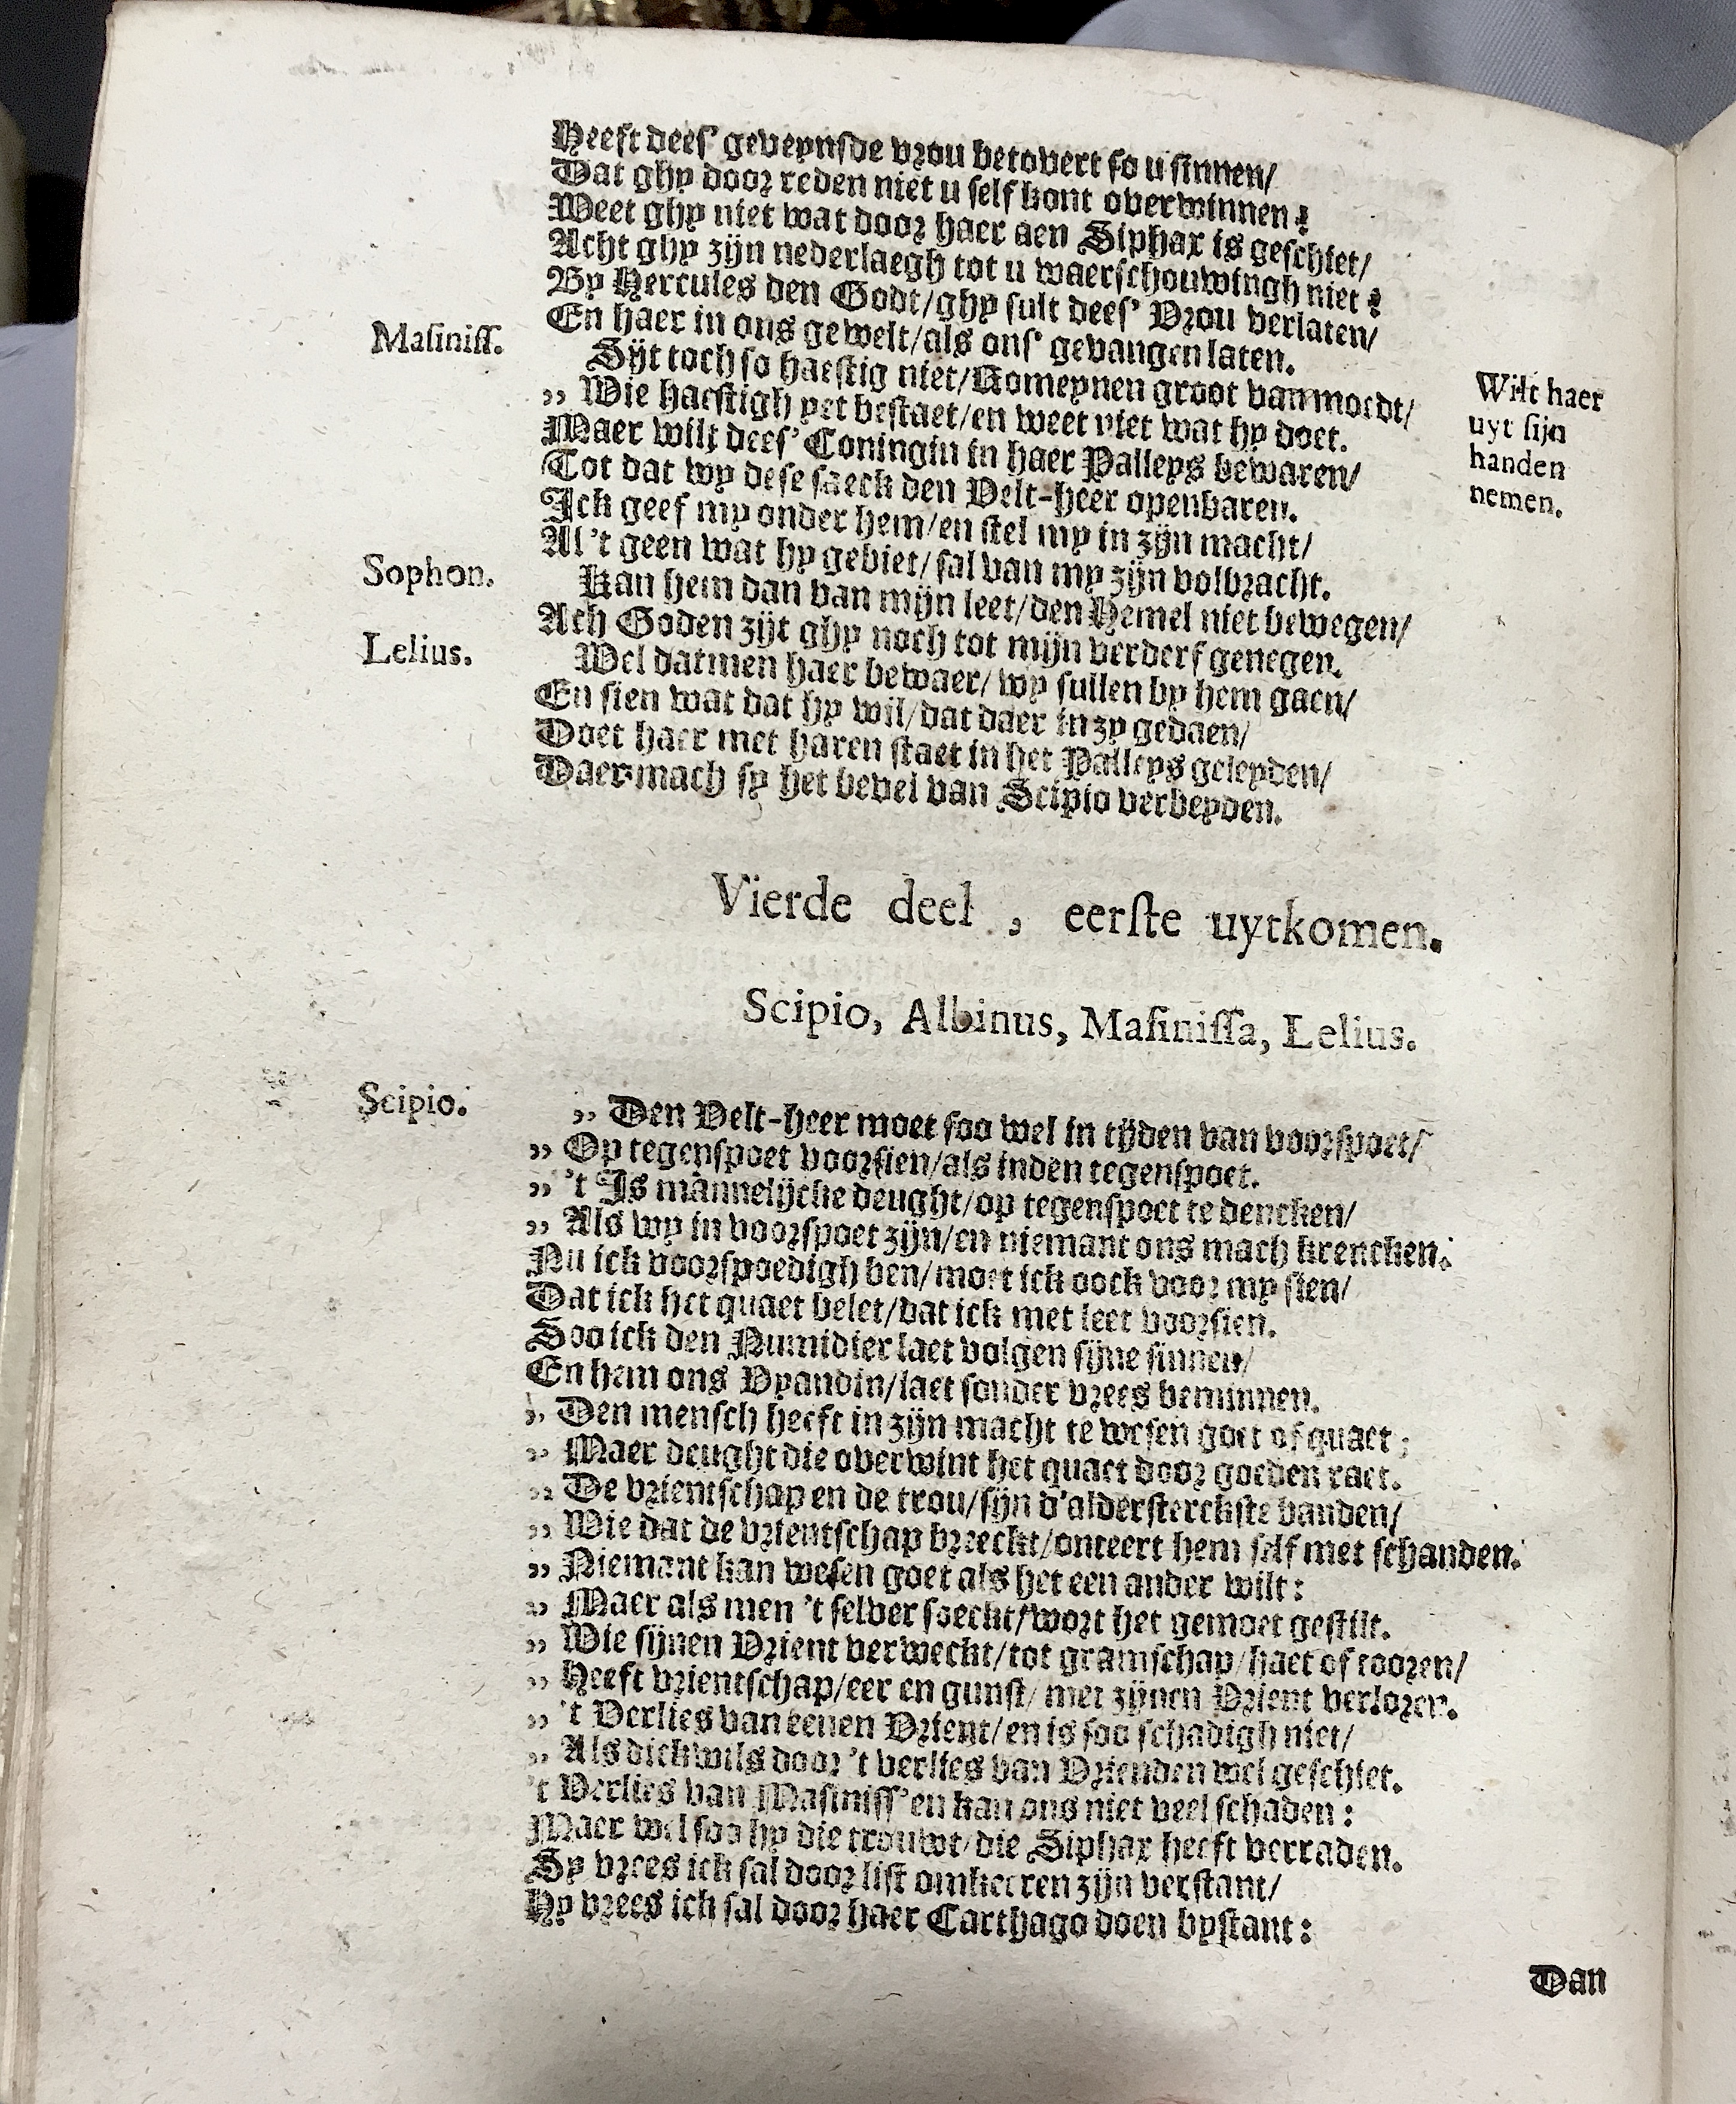 Heeft dees' geveynsde vrou betovert so u sinnen/
Dat ghy door reden niet u self kont overwinnen?
Weet ghy niet wat door haer aen Siphax is geschiet/
Acht ghy zijn nederlaegh tot u waerschouwingh niet?
By Hercules den Godt/ghy sult dees' Vrou verlaten/
En haer in ons gewelt/als ons' gevangen laten.
Masiniss. Sijt toch so haestig niet/Romeynen groot van moedt/
„ Wie haestigh yet bestaet/en weet niet wat hy doet.
Maer wilt dees' Coningin in haer Palleys bewaren/
Wilt haer
uyt sijn
handen
nemen.
Tot dat wy dese saeck den Velt-heer openbaren.
Ick geef my onder hem/en stel my in zijn macht/
Al 't geen wat hy gebiet/sal van my zijn volbracht.
Sophon. Kan hem dan van mijn leet/den Hemel niet bewegen/
Ach Goden zijt ghy noch tot mijn verderf genegen.
Lelius. Wel datmen haer bewaer/wy sullen by hem gaen/
En sien wat dat hy wil/dat daer in zy gedaen/
Doet haer met haren staet in het Palleys geleyden/
Daer mach sy het bevel van Scipio verbeyden.
Vierde deel , eerste uytkomen.
Scipio, Albinus, Masinissa, Lelius.
Scipio. „ Den Velt-heer moet soo wel in tijden van voorspoet/
„ Op tegenspoet voorsien/als inden tegenspoet.
„ 't Is mannelijcke deught/op tegenspoet te dencken/
„ Als wy in voorspoet zijn/en niemant ons mach krencken.
Nu ick voorspoedigh ben/moet ick oock voor my sien/
Dat ick het quaet belet/dat ick met leet voorsien.
Soo ick den Numidier laet volgen sijne sinnen/
En hem ons Vyandin/laet sonder vrees beminnen.
„ Den mensch heeft in zijn macht te wesen goet of quaet;
„ Maer deught die overwint het quaet door goeden raet.
„ De vrientschap en de trou/sijn d'aldersterckste banden/
„ Wie dat de vrientschap breeckt/onteert hem self met schanden.
„ Niemant kan wesen goet als het een ander wilt:
„ Maer als men 't selver soeckt/wort het gemoet gestilt.
„ Wie sijnen Vrient verweckt/tot gramschap/haet of tooren/
„ Heeft vrientschap/eer en gunst/met zijnen Vrient verloren.
„ 't Verlies van eenen Vrient/en is soo schadigh niet/
„ Als dickwils door 't verlies van Vrienden wel geschiet.
't Verlies van Masiniss' en kan ons niet veel schaden:
Maer wel soo hy die trouwt/die Siphax heeft verraden.
Sy vrees ick sal door list omkeeren zijn verstant/
Hy vrees ick sal door haer Carthago doen bystant:
Dan